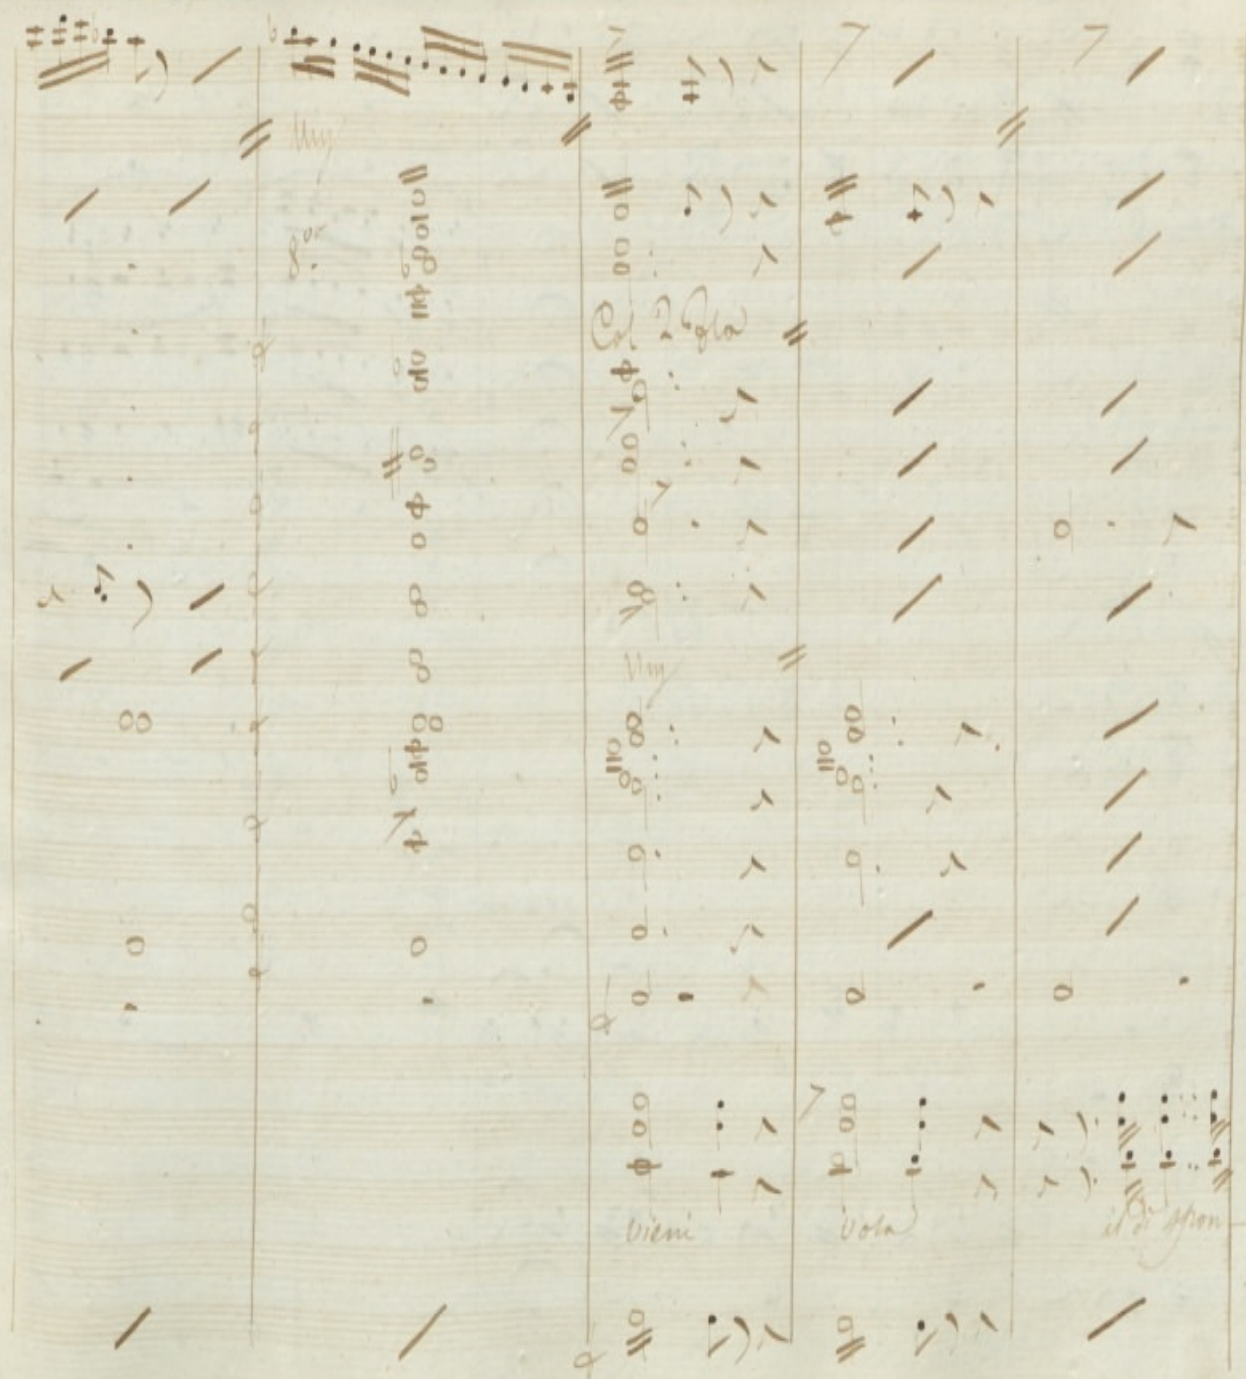 Unis
8va
Col 2 Viola
Unis
vieni vola il dì spun-